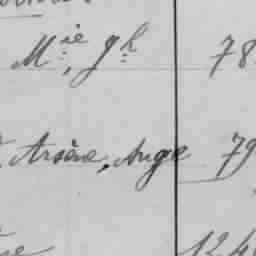 Mie, Jh 78
Arsène, Ange 79
124